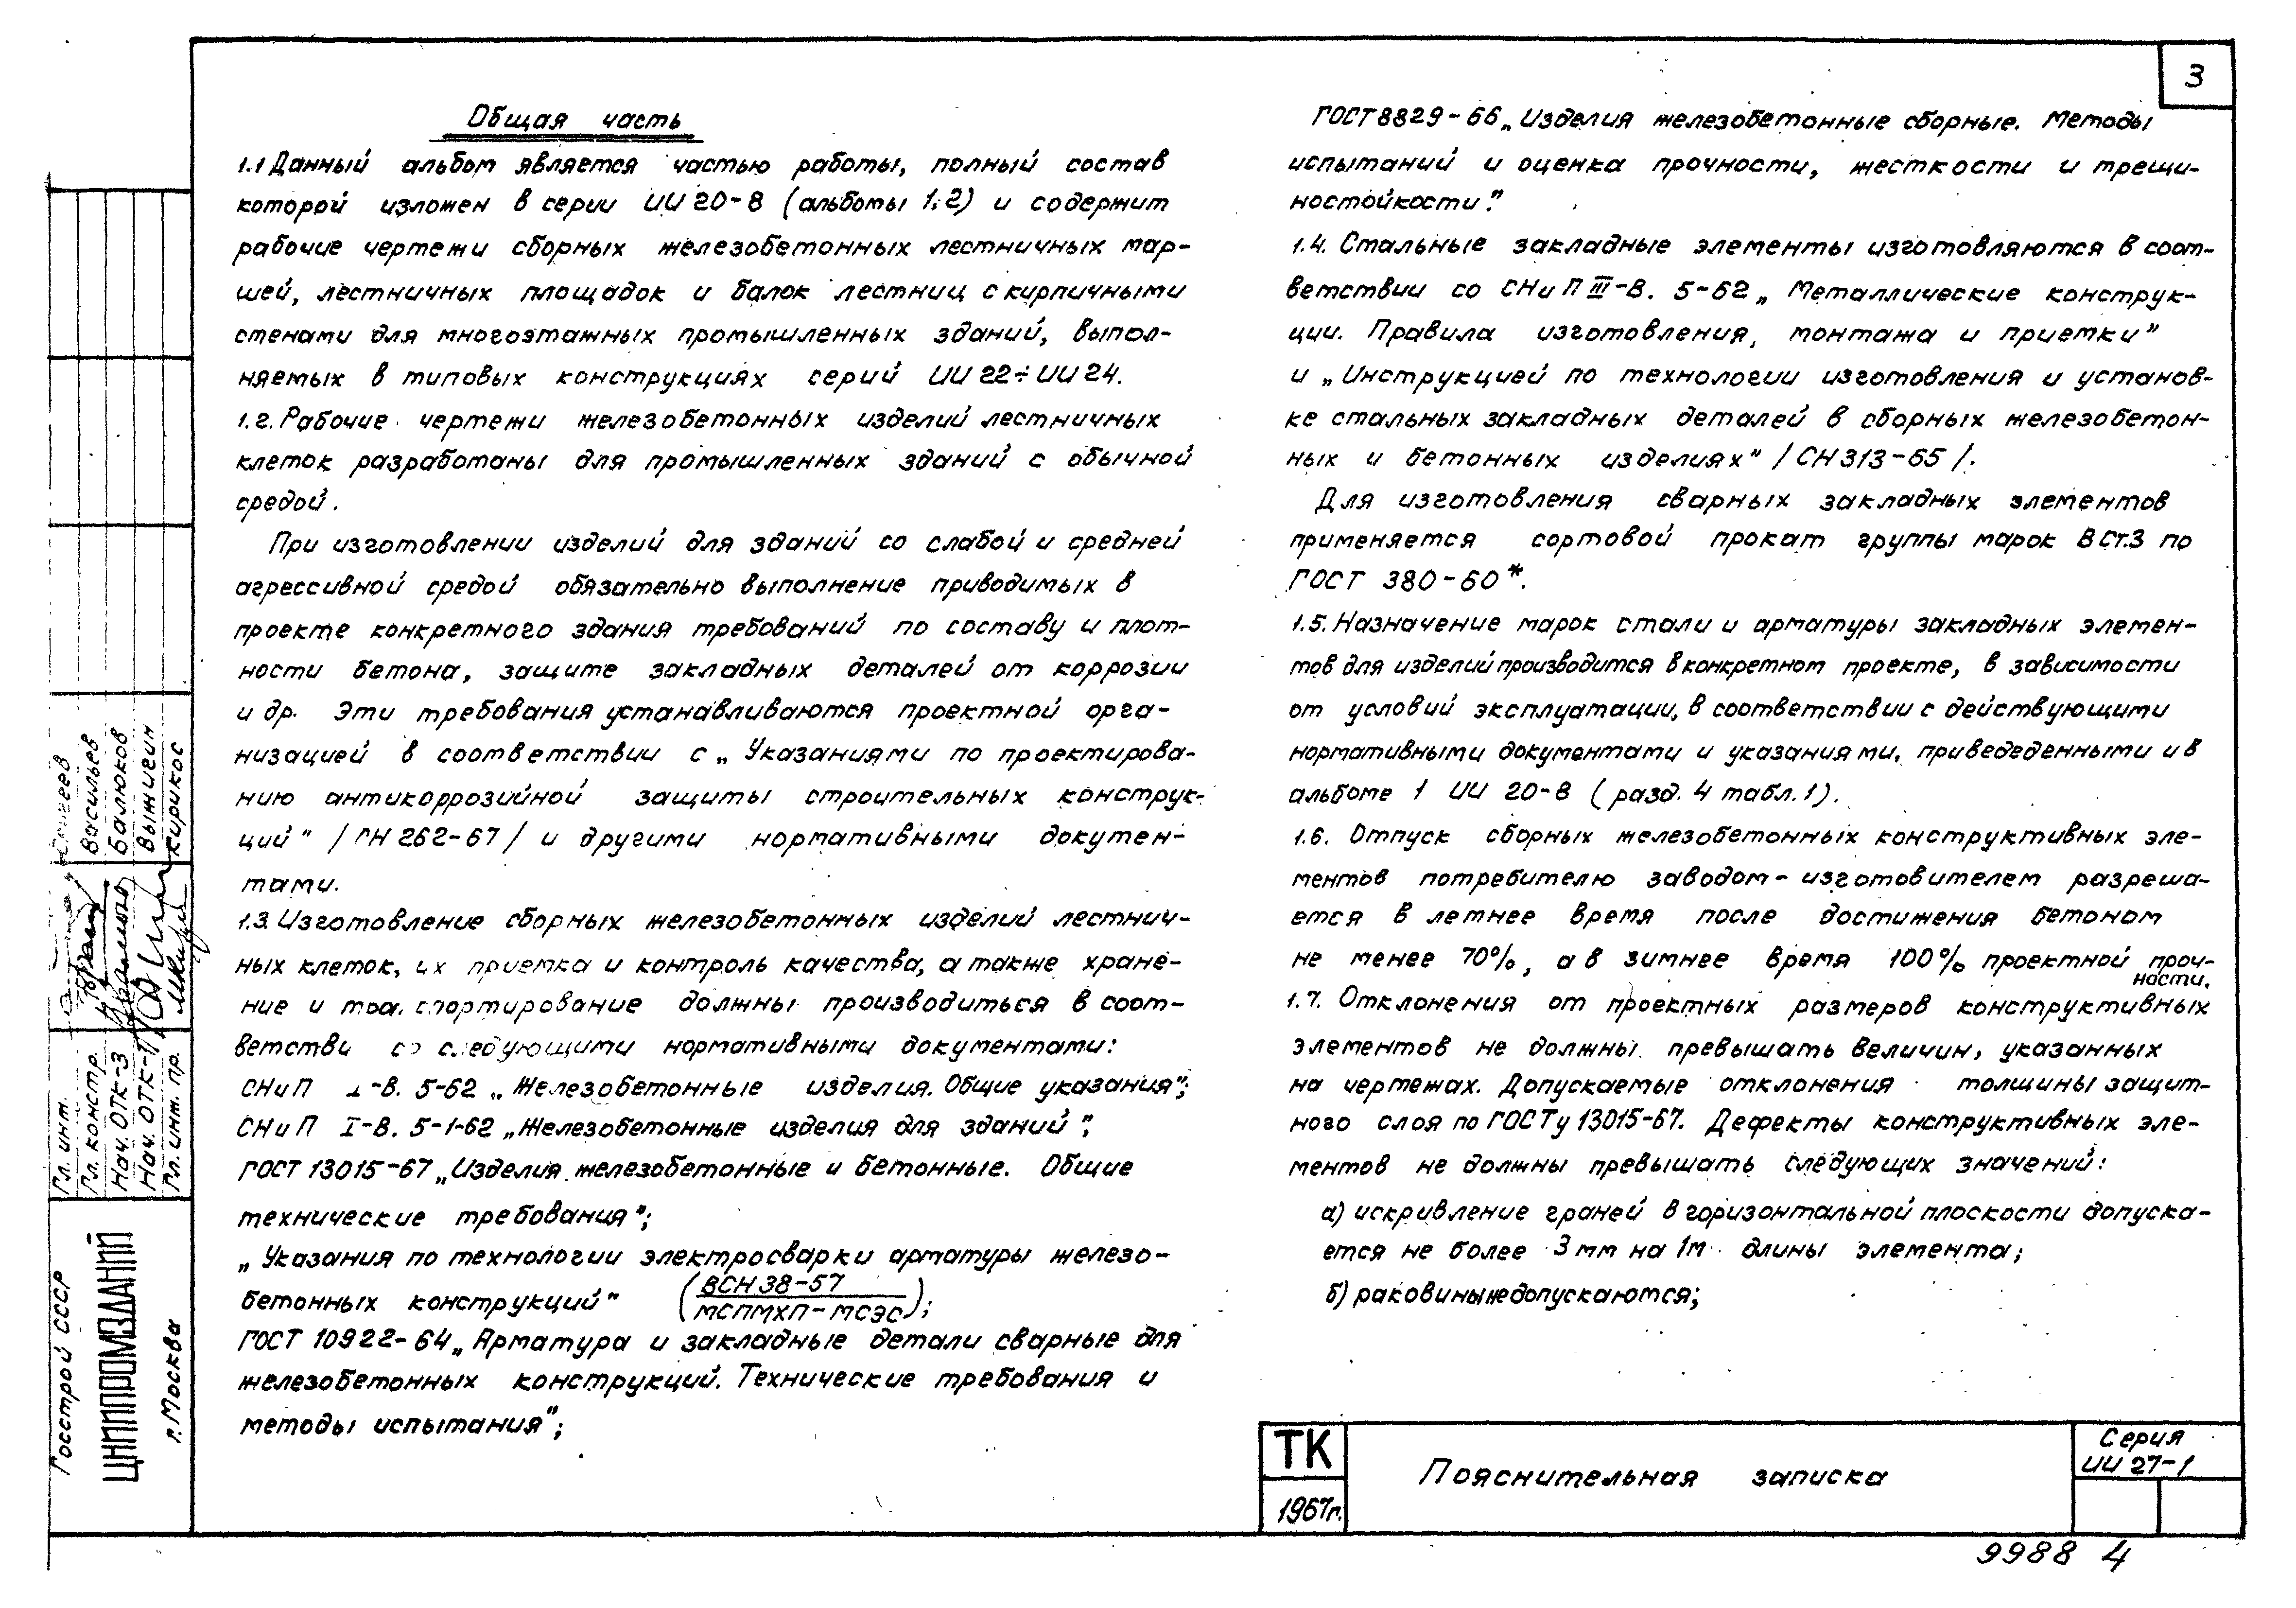 3
Общая часть
1.1 Данный альбом является частью работы, полный состав
которой изложен в серии ИИ 20-8 (альбомы 1; 2) и содержит
рабочие чертежи сборных железобетонных лестничных мар-
шей, лестничных площадок и балок лестниц с кирпичными
стенами для многоэтажных промышленных зданий, выпол-
няемых в типовых конструкциях серий ИИ 22÷ИИ 24.
1.2. Рабочие чертежи железобетонных изделий лестничных
клеток разработаны для промышленных зданий с обычной
средой.
При изготовлении изделий для зданий со слабой и средней
агрессивной средой обязательно выполнение приводимых в
проекте конкретного здания требований по составу и плот-
ности бетона, защите закладных деталей от коррозии
и др. Эти требования устанавливаются проектной орга-
низацией в соответствии с „Указаниями по проектирова-
нию антикоррозийной защиты строительных конструк-
ций" /СН 262-67/ и другими нормативными докумен-
тами.
1.3. Изготовление сборных железобетонных изделий лестнич-
ных клеток, их приемка и контроль качества, а также хране-
ние и транспортирование должны производиться в соот-
ветстви со следующими нормативными документами:
СНиП I-В. 5-62 „Железобетонные изделия. Общие указания";
СНиП I-В. 5-1-62 „Железобетонные изделия для зданий";
ГОСТ 13015-67 „Изделия железобетонные и бетонные. Общие
технические требования";
„Указания по технологии электросварки арматуры железо-
бетонных конструкций" (ВСН 38-57
МСПМХП-МСЭС);
ГОСТ 10922-64 „Арматура и закладные детали сварные для
железобетонных конструкций. Технические требования и
методы испытания";
ГОСТ 8829-66 „Изделия железобетонные сборные. Методы
испытаний и оценка прочности, жесткости и трещи-
ностойкости".
1.4. Стальные закладные элементы изготовляются в соот-
ветствии со СНиП III-В. 5-62 „Металлические конструк-
ции. Правила изготовления, монтажа и приемки"
и „Инструкцией по технологии изготовления и установ-
ке стальных закладных деталей в сборных железобетон-
ных и бетонных изделиях" /СН 313-65/.
Для изготовления сварных закладных элементов
применяется сортовой прокат группы марок В Ст.3 по
ГОСТ 380-60*.
1.5. Назначение марок стали и арматуры закладных элемен-
тов для изделий производится в конкретном проекте, в зависимости
от условий эксплуатации, в соответствии с действующими
нормативными документами и указаниями, приведеденными и в
альбоме 1 ИИ 20-8 (разд. 4 табл. 1).
1.6. Отпуск сборных железобетонных конструктивных эле-
ментов потребителю заводом-изготовителем разреша-
ется в летнее время после достижения бетоном
не менее 70%, а в зимнее время 100% проектной проч-
ности.
1.7. Отклонения от проектных размеров конструктивных
элементов не должны превышать величин, указанных
на чертежах. Допускаемые отклонения толщины защит-
ного слоя по ГОСТу 13015-67. Дефекты конструктивных эле-
ментов не должны превышать следующих значений:
а) искривление граней в горизонтальной плоскости допуска-
ется не более 3 мм на 1м длины элемента;
б) раковины не допускаются;
Васильев
Балюков
Выжигин
Кирикос
Гл. инж.
Гл. констр.
Нач. ОТК-3
Нач. ОТК-1
Гл. инж. пр.
Госстрой СССР
ЦНИИПРОМЗДАНИЙ
г. Москва
ТК
1967г.
Пояснительная записка
Серия
ИИ 27-1
9988 4